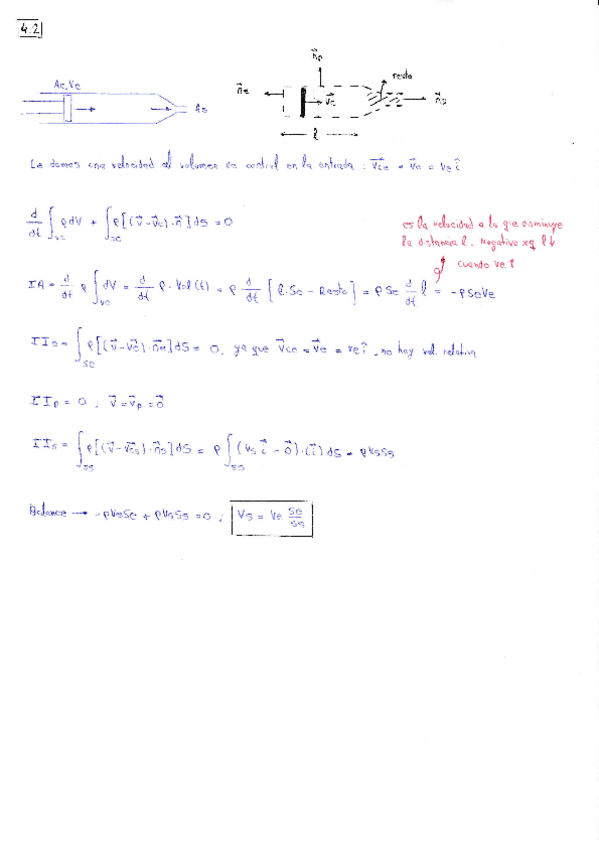 4.2
Ae, Ve
As
n⃗e
n⃗p
v⃗e
resto
n⃗s
l
Le damos una velocidad al volumen de control en la entrada : v⃗ce = v⃗e = ve î
d/dt ∫vc ρdV + ∫sc ρ[(v⃗-v⃗c)·n⃗]dS = 0
es la velocidad a la que disminuye
la distancia l. Negativo xq l↓
cuando ve↑
IA = d/dt ρ ∫vc dV = d/dt ρ·Vol(t) = ρ d/dt [l·Se - Resto] = ρ Se d/dt l = -ρSeVe
IIe = ∫se ρ[(v⃗-v⃗c)·n⃗e]dS = 0, ya que v⃗ce = v⃗e = ve î, no hay vel. relativa
IIp = 0 ; v⃗ = v⃗p = 0⃗
IIs = ∫ss ρ[(v⃗-v⃗cs)·n⃗s]dS = ρ ∫ss (vs i⃗ - 0⃗)·(i⃗)dS = ρVsSs
Balance → -ρVeSe + ρVsSs = 0 ; Vs = Ve Se/Ss